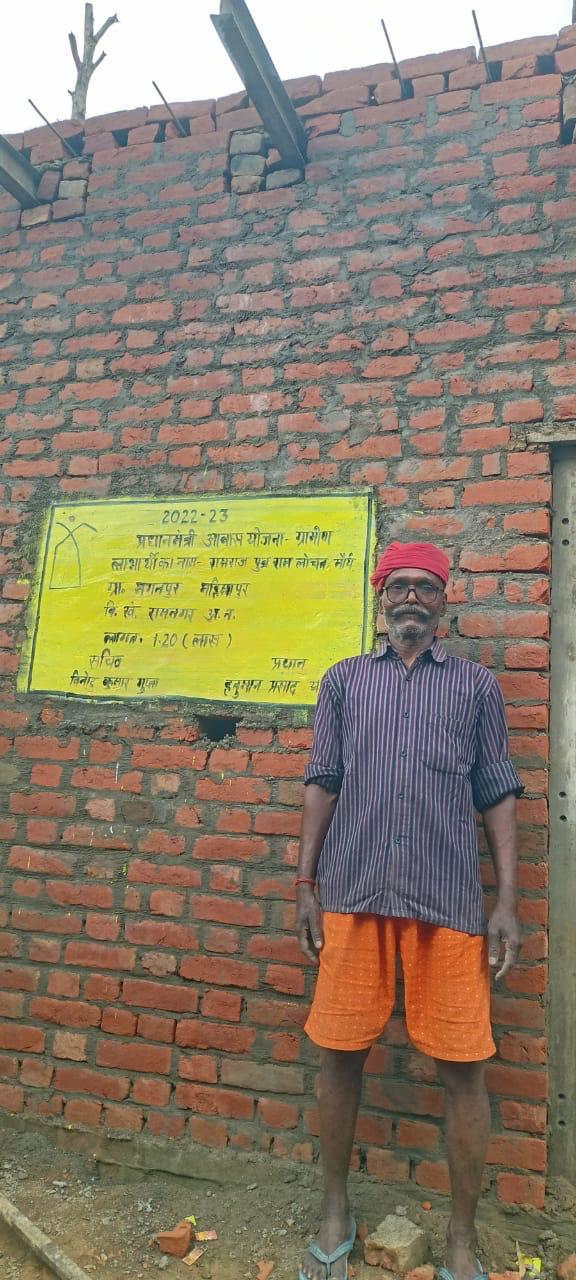 2022-23
प्रधानमंत्री आवास योजना- ग्रामीण
लाभार्थी का नाम- रामराज पुत्र राम लोचन मौर्य
ग्रा. मगनपुर महिमापुर
वि. खं. रामनगर अ. न.
लागत. 1.20 (लाख)
सचिव प्रधान
विनोद कुमार गुप्ता हनुमान प्रसाद